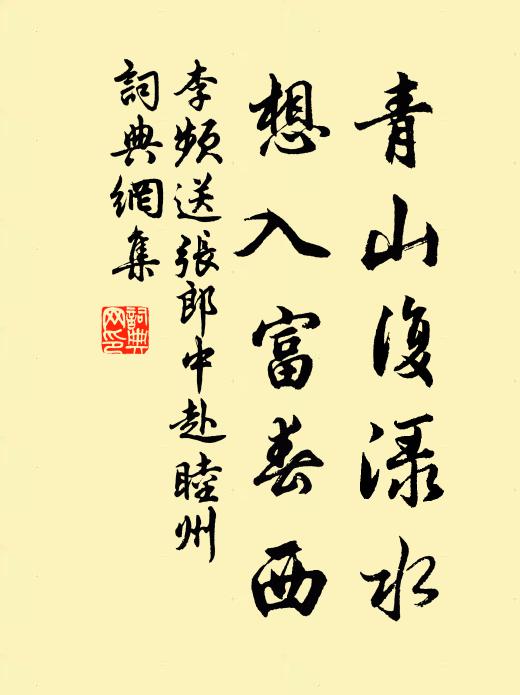 青山復渌水
想入富春西
李频送張郎中赴睦州
詞典網集
詞典网印